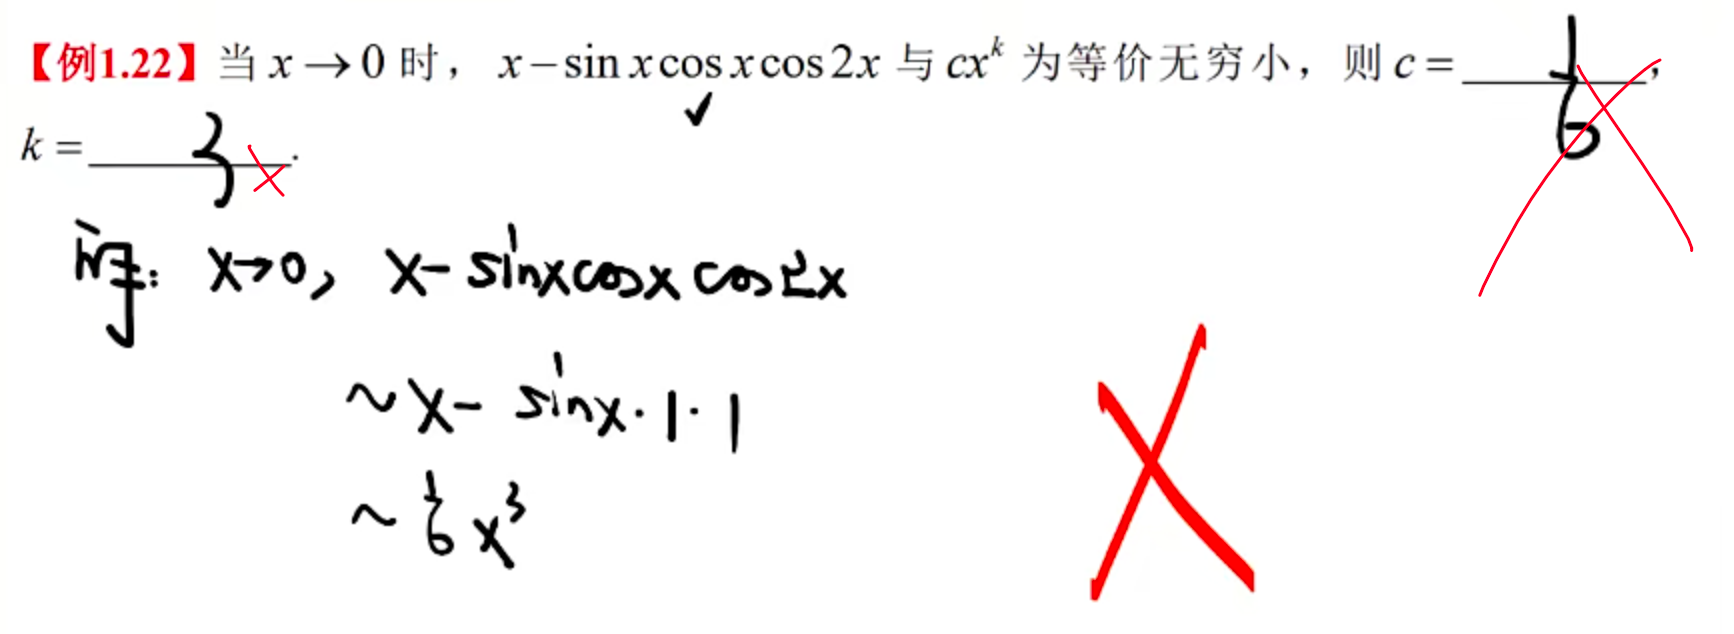 【例1.22】当 x → 0 时， x − sin x cos x cos 2x 与 cx^k 为等价无穷小，则 c = 1/6 ；
k = 3 .
解: x→0, x − sinxcosx cos2x
~ x − sinx · 1 · 1
~ 1/6 x³